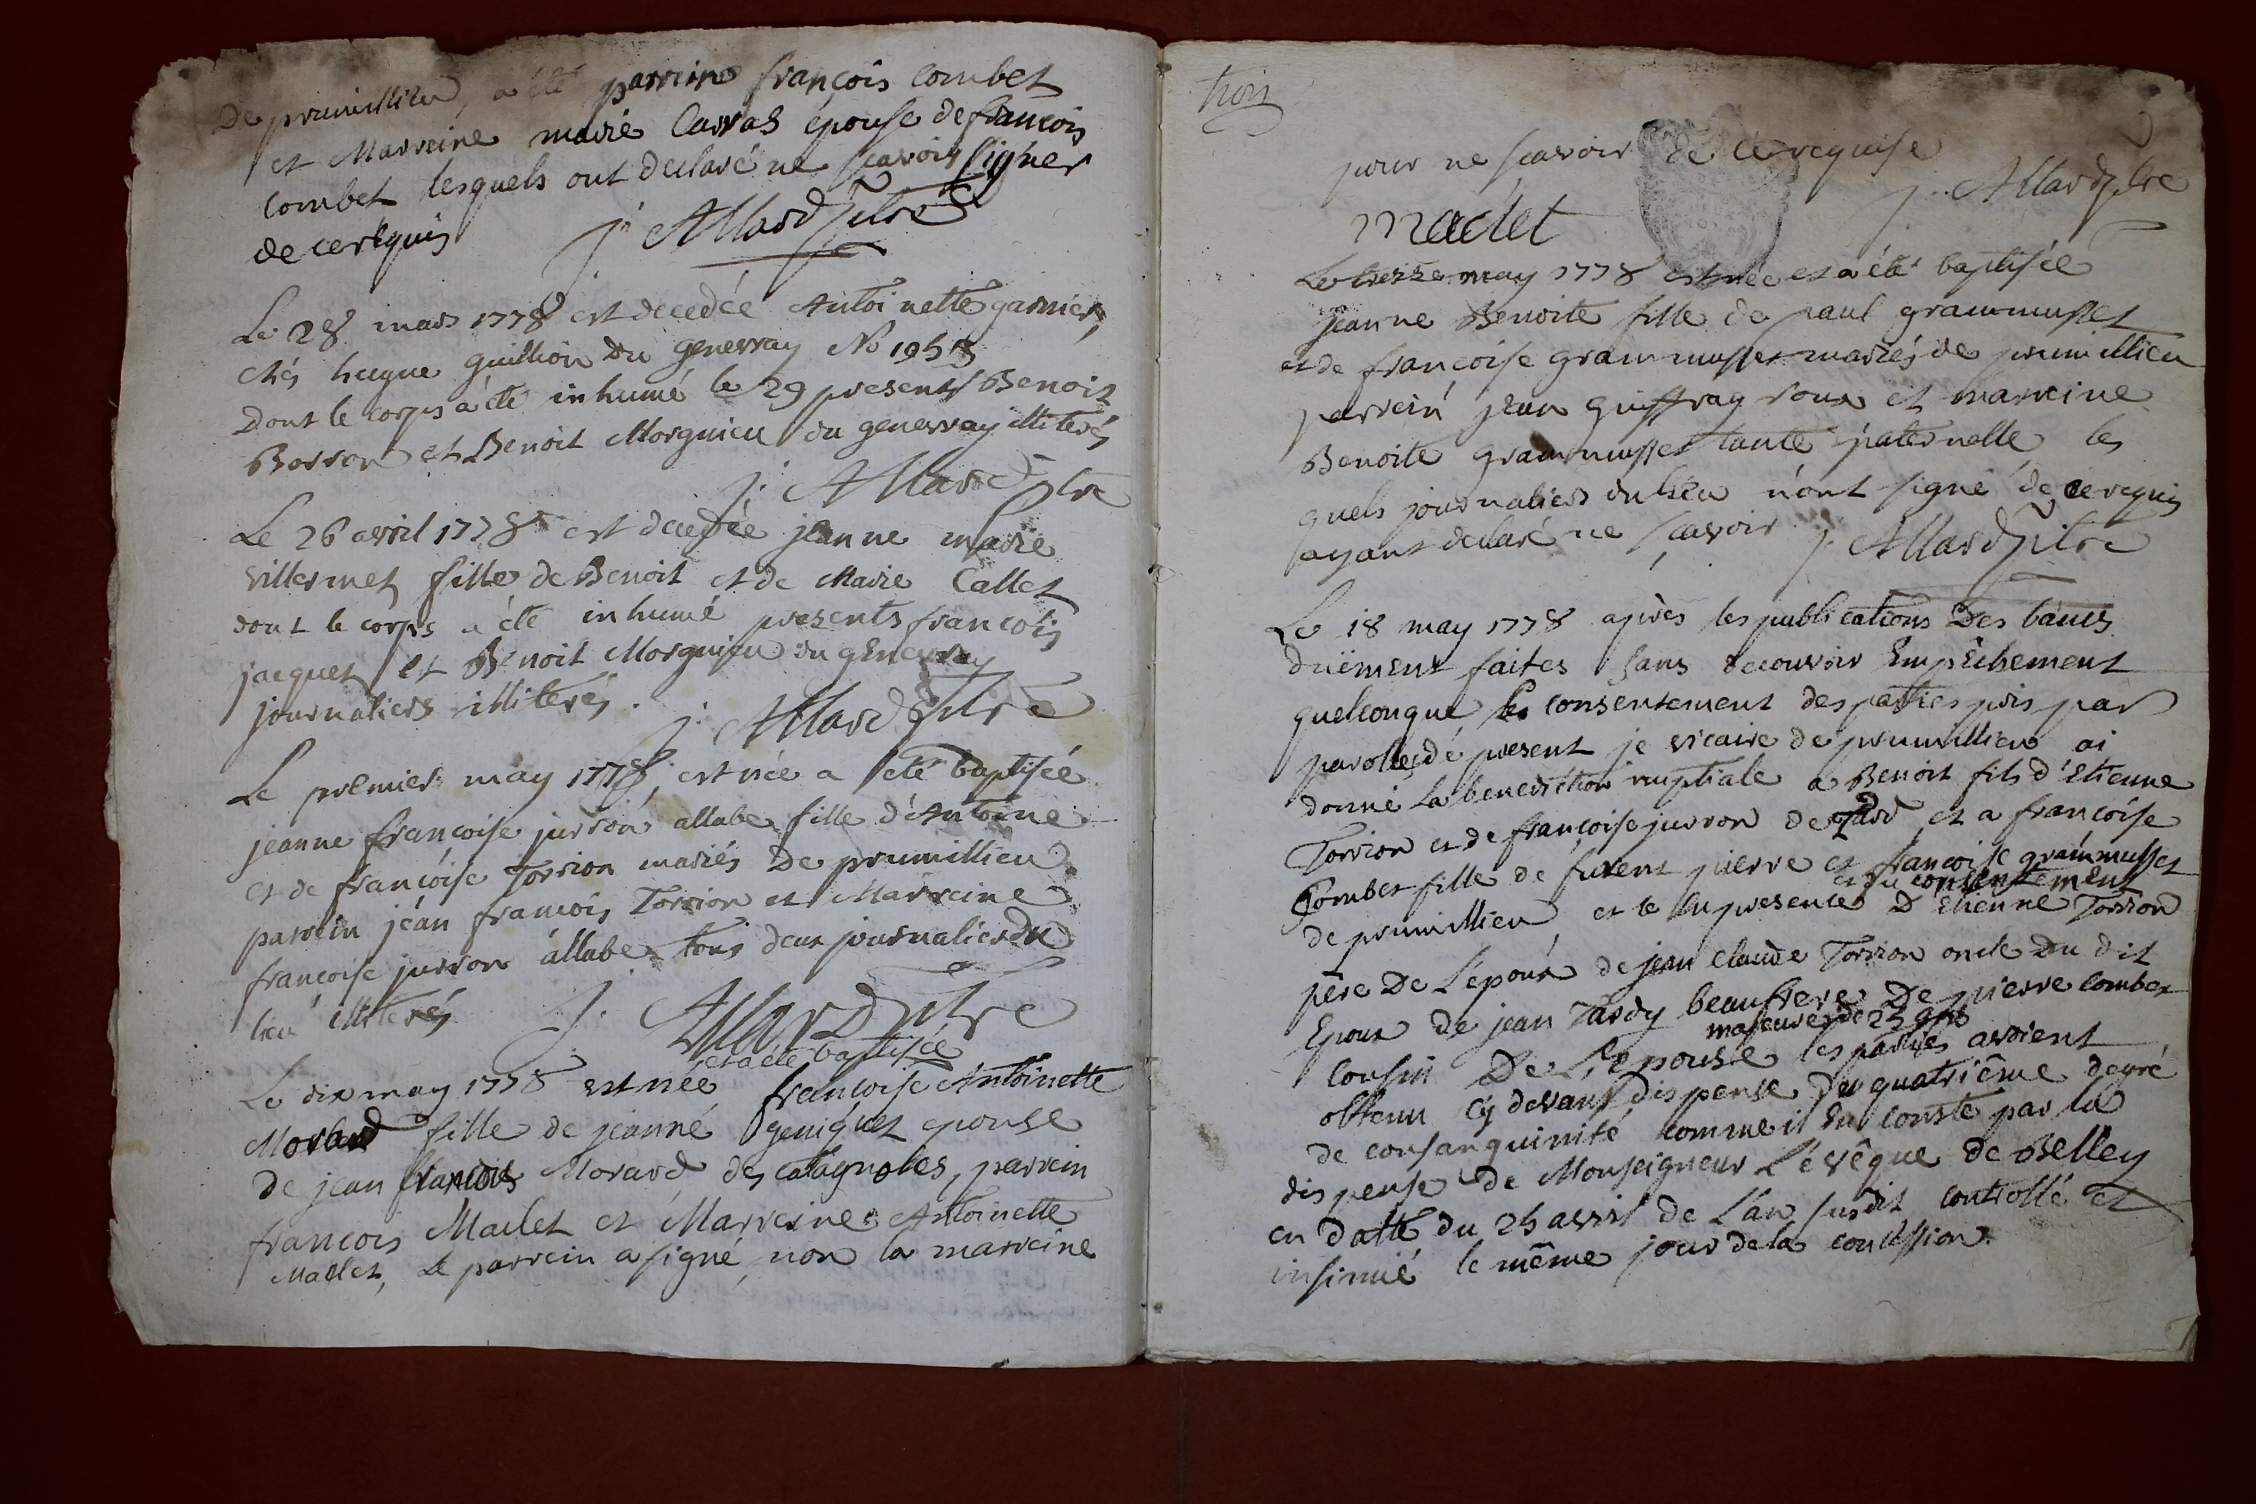 De prumillieu, a été parrein françois Combet
et Marreine marie Carras épouse de francois
Combet lesquels ont declaré ne scavoir signer
de ce requis j. Allard ptre
Le 28 mars 1778 est decedée Antoinette garnier,
chés hugue guillion du genevray
Dont le corps à été inhumé le 29 presents Benoit
Borron et Benoit Morgnieu du genevray illiterés
j. Allard ptre
Le 26 avril 1778 est decedée jeanne marie
villermet fille de Benoit et de Marie Callet
dont le corps a été inhumé presents francois
jacquet et Benoit Morgnieu du genevray
journaliers illiterés. j. Allard ptre
Le premier may 1778, est née a été baptisée
jeanne françoise jurron allabe fille d'Antoine
et de françoise Torrion mariés De prumillieu
parrein jean francois Torrion et Marreine
francoise juron allabe tous deux journaliers du
lieu illiterés j. Allard ptre
et a été baptisée
Le dix may 1778 est née francoise Antoinette
Morard fille de jeanne geniquet epouse
De jean francois Morard des catagnoles, parrein
francois Maclet et Marreine Antoinette
Maclet, Le parrein a signé, non la marreine
trois
pour ne scavoir de ce requise
j. Allard ptre
maclet
Le treize may 1778 est née et a été baptisée
jeanne Benoite fille de paul grammusset
et de françoise grammusset mariés de prumillieu
parrein jean guiffray roux et marreine
Benoite grammusset tante paternelle les
quels journaliers du lieu n'ont signé de ce requis
ayant declaré ne scavoir j. Allard ptre
Le 18 may 1778 après les publications Des bancs
duëment faites sans decouvrir Empêchement
quelconque le consentement des parties pris par
parolles de present je vicaire de prumillieu ai
donné La benediction nuptiale a Benoit fils d'Etienne
Torrion et de françoise juron de et a françoise
Combet fille de furent pierre et françoise grammusset
et du consentement
de prumillieu, et le en presence D'Etienne Torrion
père De L'époux de jean claude Torrion oncle Du dit
Epoux de jean Tardy beaufrere De pierre combet
majeures de 25 ans
Cousin De L'épouse les parties avoient
obtenu cy devant dispense du quatriême degré
de consanguinité, comme il En conste par la
dispense de Monseigneur L'évêque de Belley
en datte du 25 avril de L'an susdit controllé et
insinué le même jour de la concession